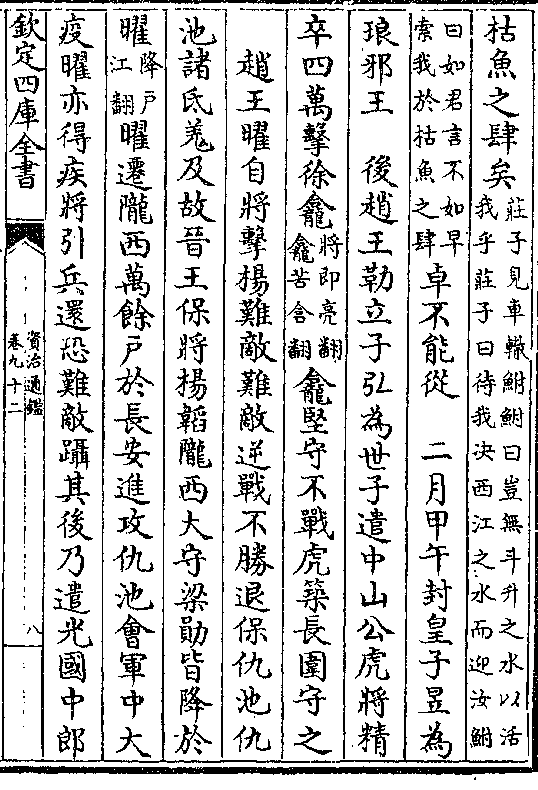 枯魚之肆矣莊子見車轍鮒鮒曰豈無斗升之水以活我乎莊子曰待我决西江之水而迎汝鮒
曰如君言不如早索我於枯魚之肆卓不能從　二月甲午封皇子昱為
琅邪王　後趙王勒立子弘為世子遣中山公虎將精
卒四萬擊徐龕將即亮翻龕苦含翻龕堅守不戰虎築長圍守之
趙王曜自將擊楊難敵難敵逆戰不勝退保仇池仇
池諸氐羌及故晉王保將楊韜隴西大守梁勛皆降於
曜降户江翻曜遷隴西萬餘户於長安進攻仇池會軍中大
疫曜亦得疾將引兵還恐難敵躡其後乃遣光國中郎
欽定四庫全書
資治通鑑
卷九十二
八